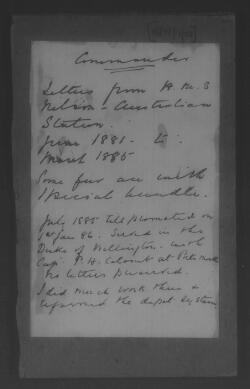 Commander
Letters from H.M.S
Nelson - Australian
Station.
June 1881 - to
March 1885
Some few are with
Special bundle.
July 1885 till promoted on
1st Jan 86. Served in the
Duke of Wellington with
Capt. P.H. Colomb at Portsmouth
No letters preserved.
I did much work there &
reformed the depot system